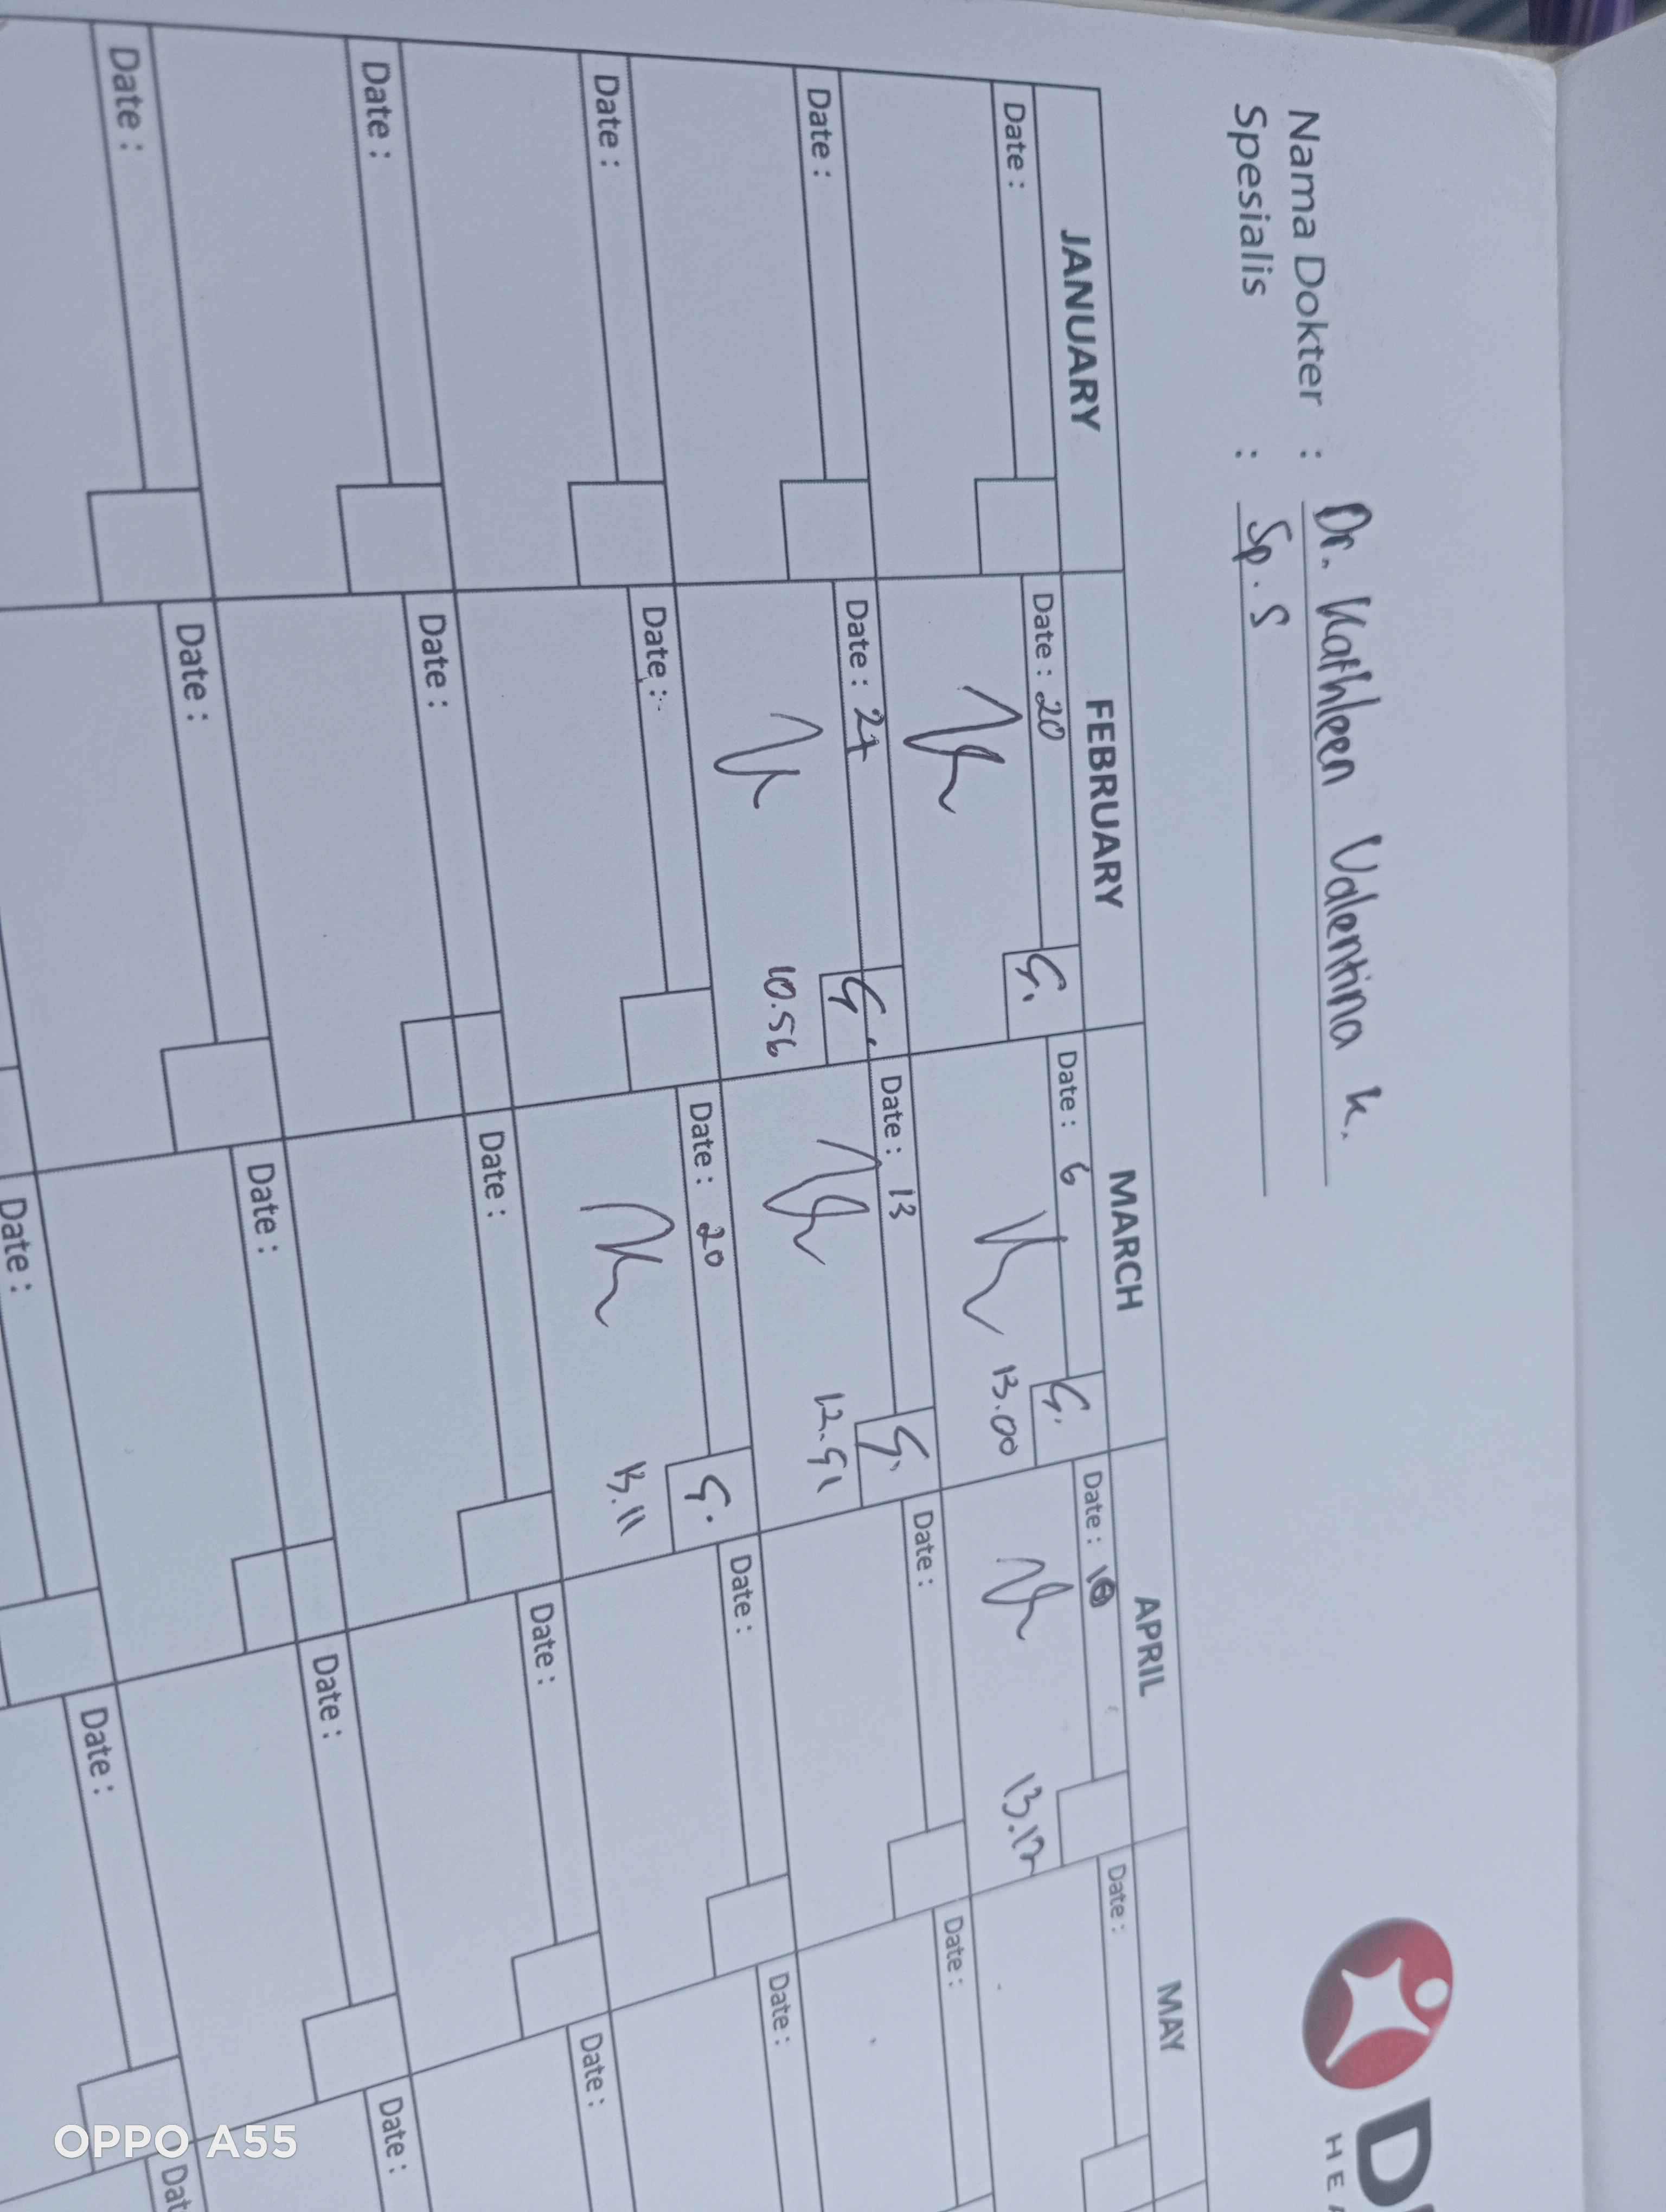 Nama Dokter : Dr. Kathleen Valentina K.
Spesialis : Sp. S
JANUARY FEBRUARY MARCH APRIL MAY
Date : Date : 20 Date : 6 Date : 10 Date :
13.00 13.17
Date : Date : 27 Date : 13 Date : Date :
10.56 12.51
Date : Date : Date : 20 Date : Date :
13.11
Date : Date : Date : Date : Date :
Date : Date : Date : Date : Date :
Date : Date :
OPPO A55